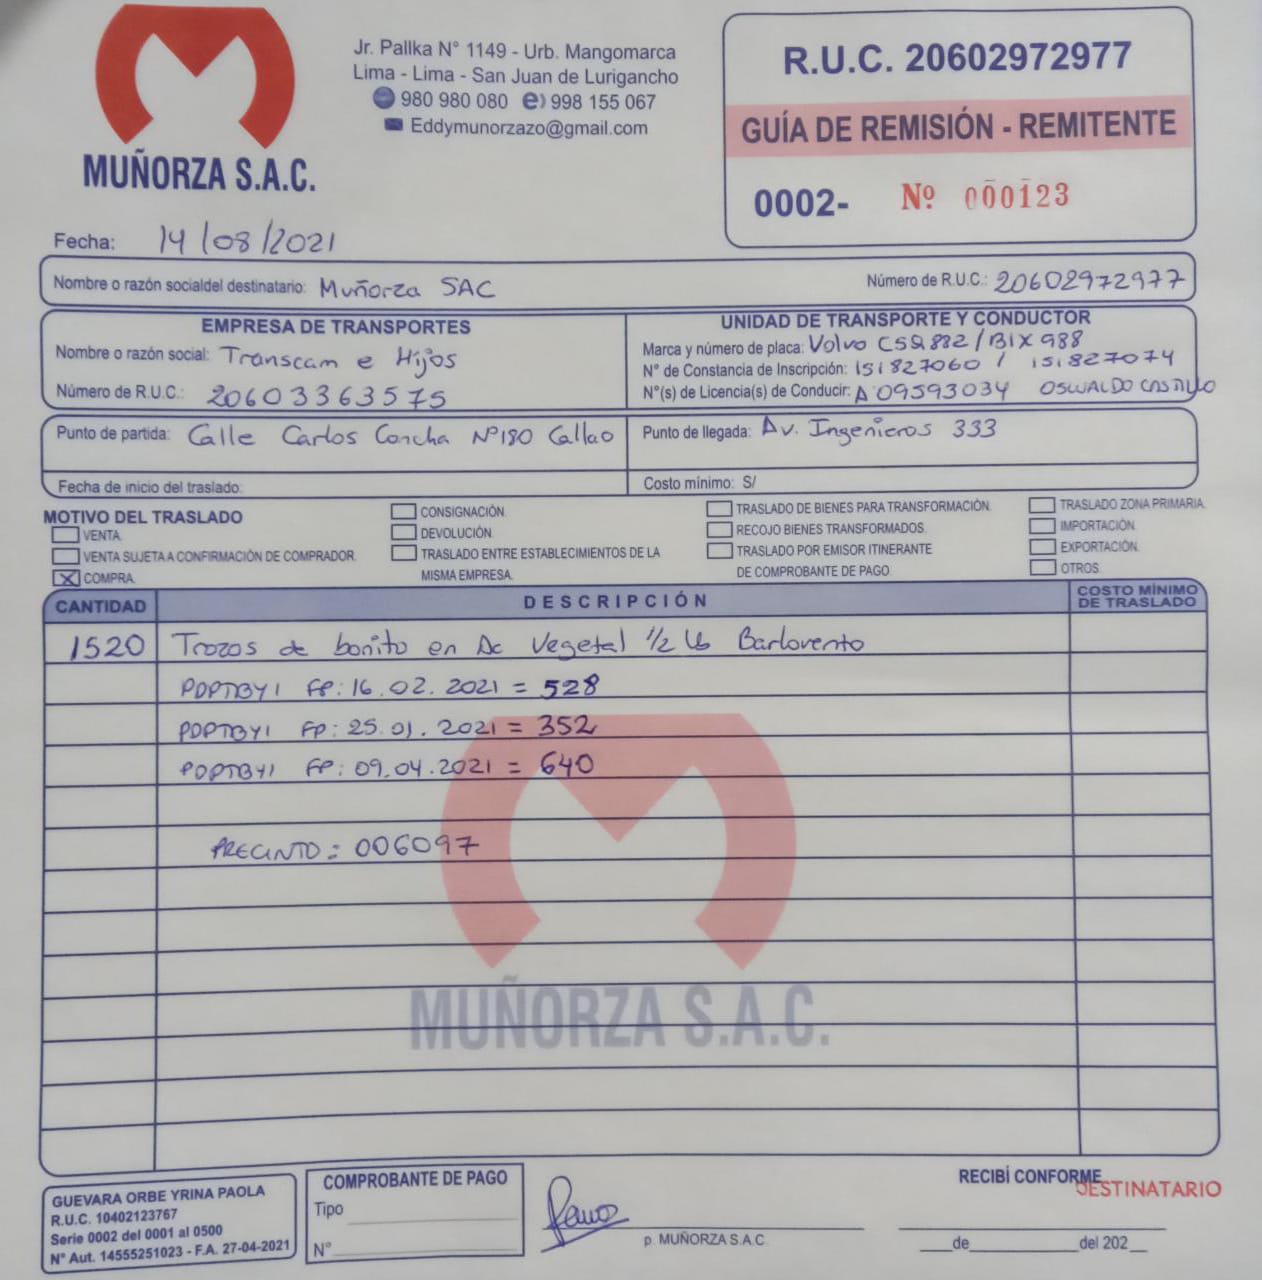 MUÑORZA S.A.C.
Jr. Pallka N° 1149 - Urb. Mangomarca
Lima - Lima - San Juan de Lurigancho
980 980 080 e) 998 155 067
Eddymunorzazo@gmail.com
R.U.C. 20602972977
GUÍA DE REMISIÓN - REMITENTE
0002- Nº 000123
Fecha: 14/08/2021
Nombre o razón socialdel destinatario: Muñorza SAC Número de R.U.C.: 20602972977
EMPRESA DE TRANSPORTES
Nombre o razón social: Transcam e Hijos
Número de R.U.C.: 20603363575
UNIDAD DE TRANSPORTE Y CONDUCTOR
Marca y número de placa: Volvo C5Q882/BIX988
N° de Constancia de Inscripción: 151827060 / 151827074
N°(s) de Licencia(s) de Conducir: A 09593034 OSWALDO CASTILLO
Punto de partida: Calle Carlos Concha N°180 Callao
Punto de llegada: Av. Ingenieros 333
Fecha de inicio del traslado:
Costo mínimo: S/
MOTIVO DEL TRASLADO
VENTA.
VENTA SUJETA A CONFIRMACIÓN DE COMPRADOR.
X COMPRA.
CONSIGNACIÓN.
DEVOLUCIÓN.
TRASLADO ENTRE ESTABLECIMIENTOS DE LA
MISMA EMPRESA.
TRASLADO DE BIENES PARA TRANSFORMACIÓN.
RECOJO BIENES TRANSFORMADOS.
TRASLADO POR EMISOR ITINERANTE
DE COMPROBANTE DE PAGO
TRASLADO ZONA PRIMARIA.
IMPORTACIÓN.
EXPORTACIÓN.
OTROS.
CANTIDAD DESCRIPCIÓN COSTO MÍNIMO
DE TRASLADO
1520 Trozos de bonito en Ac Vegetal 1/2 Lb Barlovento
PDPTBY1 FP: 16.02.2021 = 528
PDPTBY1 FP: 25.01.2021 = 352
PDPTBY1 FP: 09.04.2021 = 640
PRECINTO: 006097
MUÑORZA S.A.C.
GUEVARA ORBE YRINA PAOLA
R.U.C. 10402123767
Serie 0002 del 0001 al 0500
N° Aut. 14555251023 - F.A. 27-04-2021
COMPROBANTE DE PAGO
Tipo
N°
p. MUÑORZA S.A.C.
RECIBÍ CONFORME
DESTINATARIO
de del 202